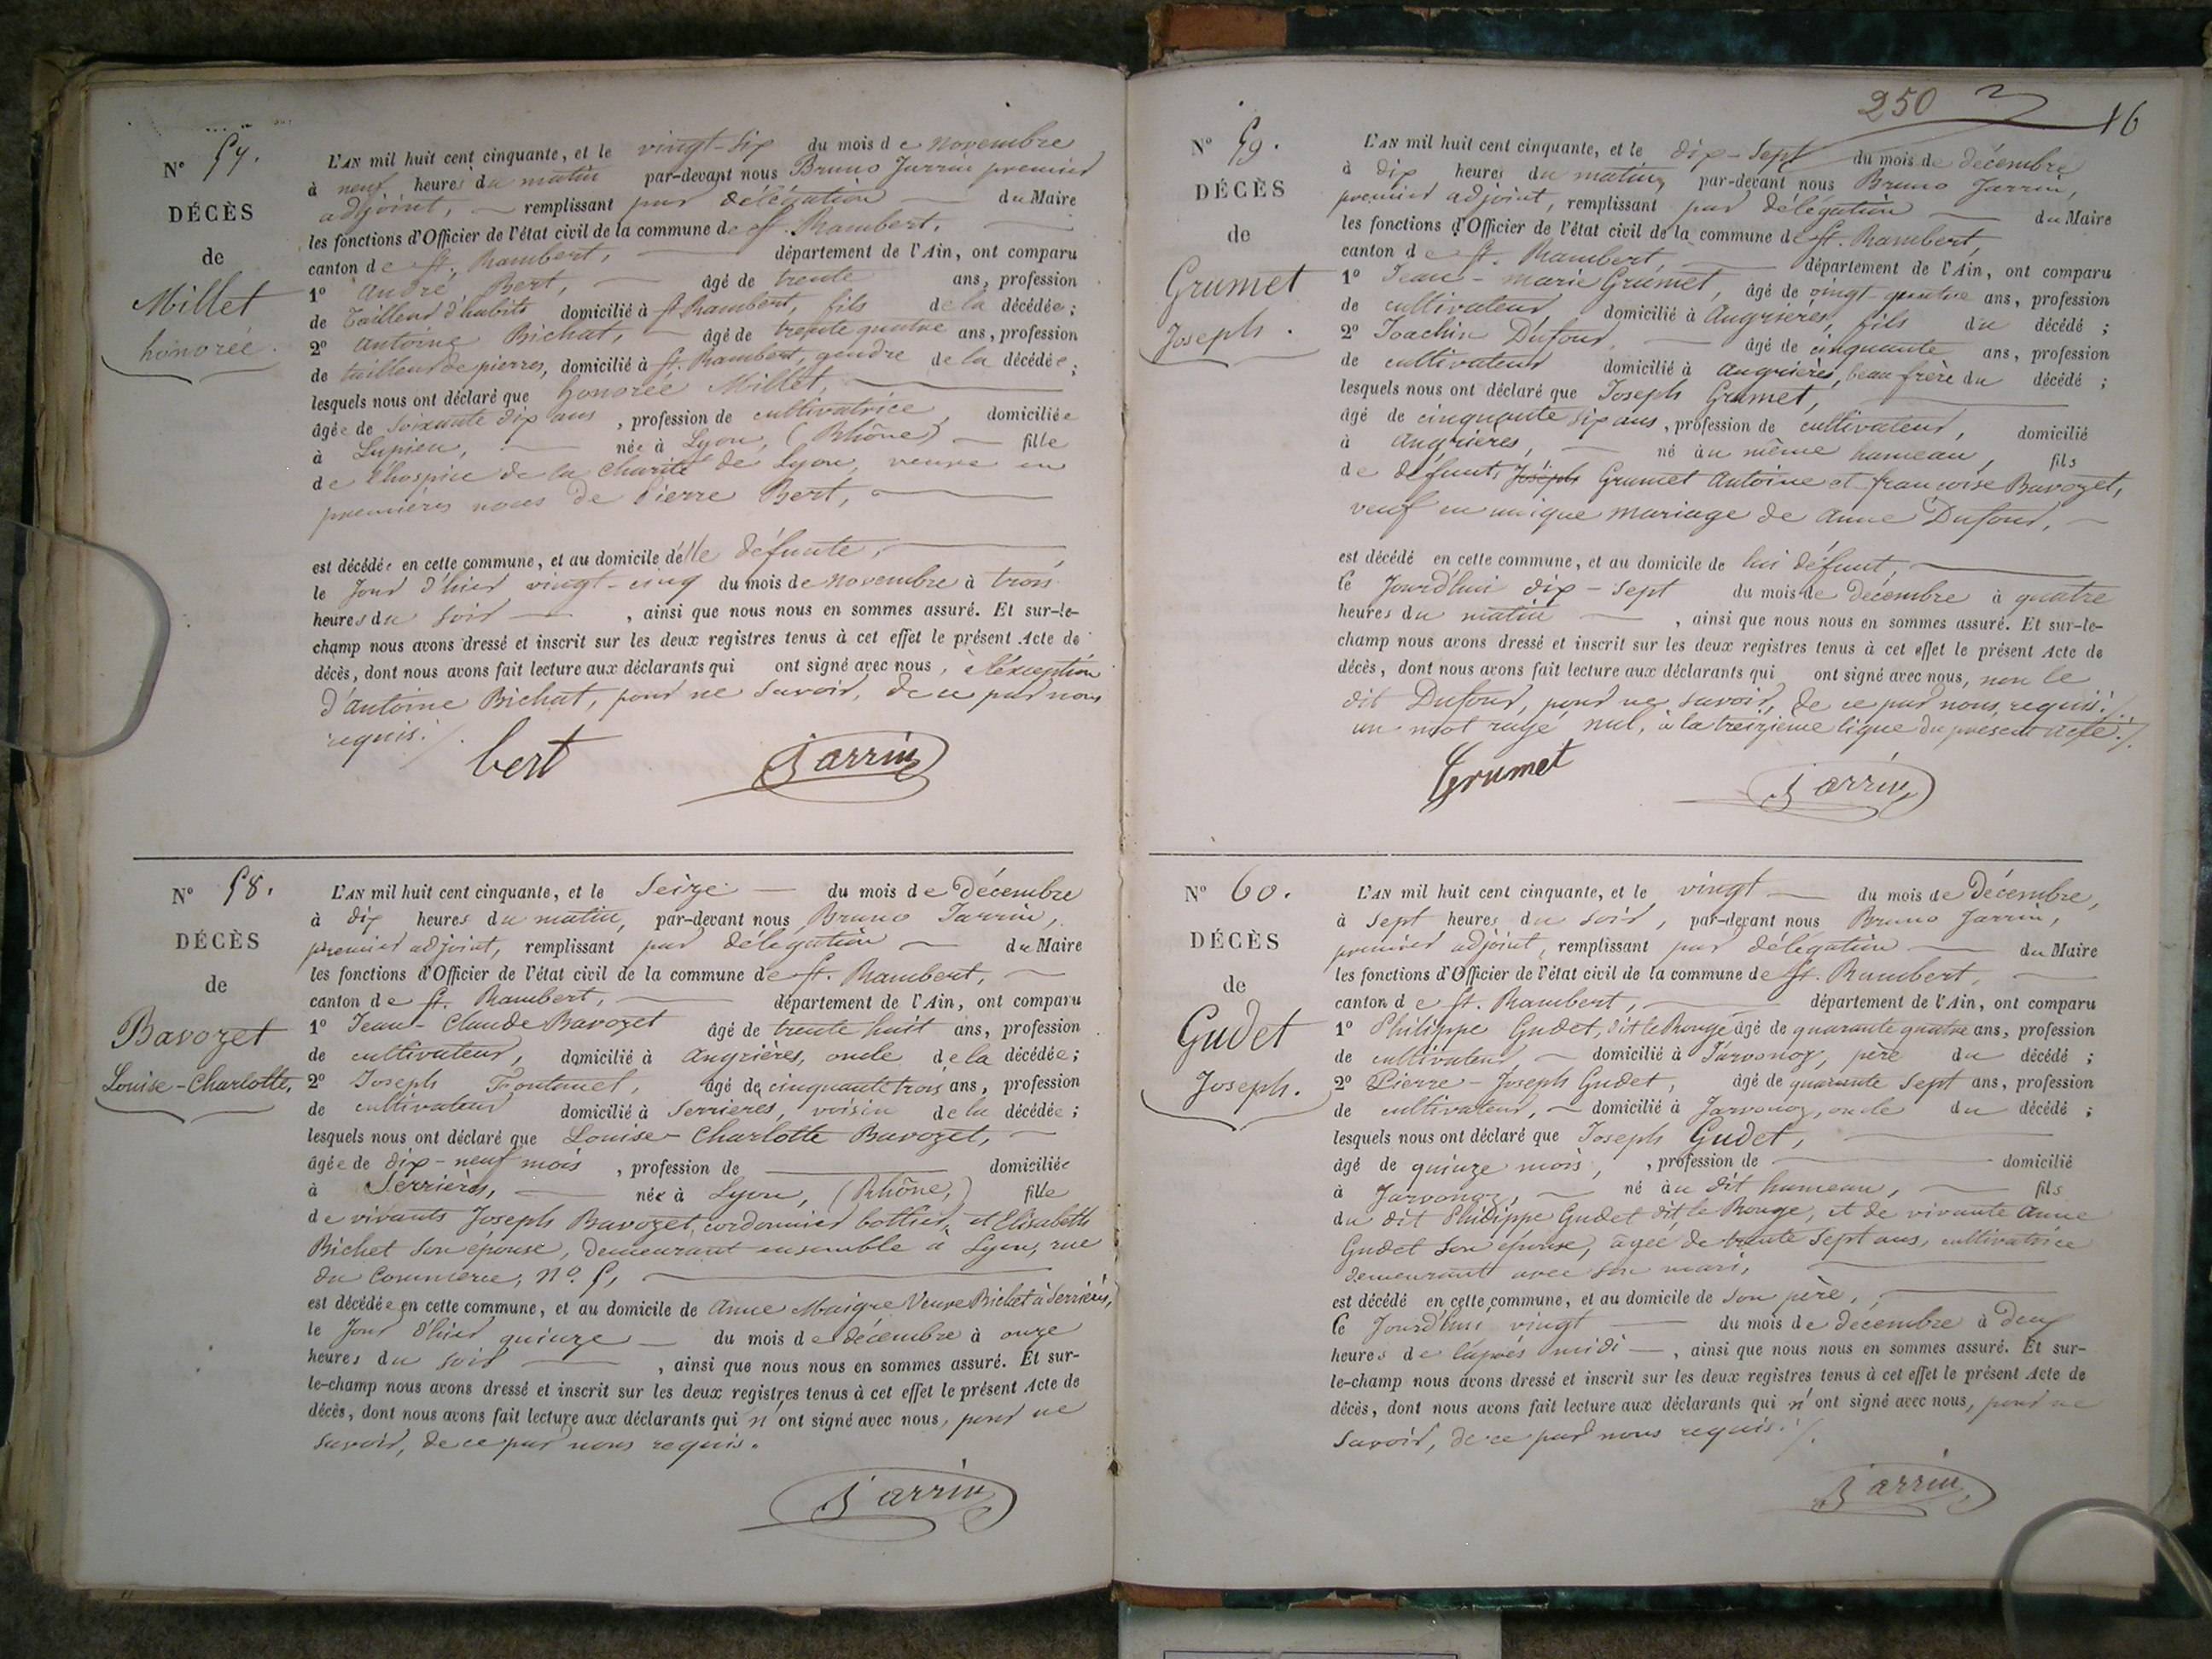 N° 57.
DÉCÈS
de
Millet
honorée.
L'AN mil huit cent cinquante, et le vingt-six du mois de novembre
à neuf heures du matin par-devant nous Bruno Jarrin premier
adjoint, remplissant par délégation du Maire
les fonctions d'Officier de l'état civil de la commune de St. Rambert,
canton de St. Rambert, département de l'Ain, ont comparu
1° André Bert, âgé de trente ans, profession
de tailleur d'habits domicilié à St Rambert, fils de la décédée;
2° antoine Bichat, âgé de trente quatre ans, profession
de tailleur de pierres, domicilié à St. Rambert, gendre de la décédée;
lesquels nous ont déclaré que honorée Millet,
âgée de soixante dix ans, profession de cultivatrice, domiciliée
à Lupieu, née à Lyon, (Rhône) fille
de l'hospice de la charité de Lyon, veuve en
premières noces de Pierre Bert,
est décédée en cette commune, et au domicile d'elle défunte,
le jour d'hier vingt-cinq du mois de novembre à trois
heures du soir, ainsi que nous nous en sommes assuré. Et sur-le-
champ nous avons dressé et inscrit sur les deux registres tenus à cet effet le présent Acte de
décès, dont nous avons fait lecture aux déclarants qui ont signé avec nous, à l'éxception
d'antoine Bichat, pour ne savoir, de ce par nous
requis./.
bert Jarrin
N° 58.
DÉCÈS
de
Bavozet
Louise-Charlotte,
L'AN mil huit cent cinquante, et le Seize du mois de Décembre
à dix heures du matin, par-devant nous Bruno Jarrin,
premier adjoint, remplissant par délégation du Maire
les fonctions d'Officier de l'état civil de la commune de St. Rambert,
canton de St. Rambert, département de l'Ain, ont comparu
1° Jean-Claude Bavozet âgé de trente huit ans, profession
de cultivateur, domicilié à angrières, oncle de la décédée;
2° Joseph Fontanel, âgé de cinquante trois ans, profession
de cultivateur domicilié à Serrières, voisin de la décédée;
lesquels nous ont déclaré que Louise-Charlotte Bavozet,
âgée de dix-neuf mois, profession de domiciliée
à Serrières, née à Lyon, (Rhône,) fille
de vivants Joseph Bavozet, cordonnier bottier, et Elisabeth
Bichet son épouse, demeurant ensemble à Lyon, rue
du Commerce, n°. 5,
est décédée en cette commune, et au domicile de Anne Maigre Veuve Bichet à Serrières,
le jour d'hier quinze du mois de décembre à onze
heures du soir, ainsi que nous nous en sommes assuré. Et sur-
le-champ nous avons dressé et inscrit sur les deux registres tenus à cet effet le présent Acte de
décès, dont nous avons fait lecture aux déclarants qui n'ont signé avec nous, pour ne
savoir, de ce par nous requis.
Jarrin
250 16
N° 59.
DÉCÈS
de
Grumet
Joseph.
L'AN mil huit cent cinquante, et le dix-sept du mois de décembre
à dix heures du matin, par-devant nous Bruno Jarrin,
premier adjoint, remplissant par délégation du Maire
les fonctions d'Officier de l'état civil de la commune de St. Rambert,
canton de St. Rambert, département de l'Ain, ont comparu
1° Jean-marie Grumet, âgé de vingt-quatre ans, profession
de cultivateur, domicilié à Angrières, fils du décédé;
2° Joachin Dufour, âgé de cinquante ans, profession
de cultivateur domicilié à angrières, beau frère du décédé;
lesquels nous ont déclaré que Joseph Grumet,
âgé de cinquante six ans, profession de cultivateur, domicilié
à Angrières, né au même hameau, fils
de défunts Joseph Grumet Antoine et françoise Bavozet,
veuf en unique mariage de Anne Dufour,
est décédé en cette commune, et au domicile de lui défunt,
le Jourd'hui dix-sept du mois de décembre à quatre
heures du matin, ainsi que nous nous en sommes assuré. Et sur-le-
champ nous avons dressé et inscrit sur les deux registres tenus à cet effet le présent Acte de
décès, dont nous avons fait lecture aux déclarants qui ont signé avec nous, non le
dit Dufour, pour ne savoir, de ce par nous requis./.
un mot rayé nul, à la treizième ligne du présent acte./.
Grumet Jarrin
N° 60.
DÉCÈS
de
Gudet
Joseph.
L'AN mil huit cent cinquante, et le vingt du mois de Décembre,
à sept heures du soir, par-devant nous Bruno Jarrin,
premier adjoint, remplissant par délégation du Maire
les fonctions d'Officier de l'état civil de la commune de St. Rambert,
canton de St. Rambert, département de l'Ain, ont comparu
1° Philippe Gudet, dit le Rouge âgé de quarante quatre ans, profession
de cultivateur domicilié à Jarvonoz, père du décédé;
2° Pierre-Joseph Gudet, âgé de quarante sept ans, profession
de cultivateur, domicilié à Jarvonoz, oncle du décédé;
lesquels nous ont déclaré que Joseph Gudet,
âgé de quinze mois, profession de domicilié
à Jarvonoz, né au dit hameau, fils
du dit Philippe Gudet dit le Rouge, et de vivante Anne
Gudet son épouse, agée de trente sept ans, cultivatrice
demeurant avec son mari,
est décédé en cette commune, et au domicile de son père,
le Jourd'hui vingt du mois de décembre à deux
heures de l'après midi, ainsi que nous nous en sommes assuré. Et sur-
le-champ nous avons dressé et inscrit sur les deux registres tenus à cet effet le présent Acte de
décès, dont nous avons fait lecture aux déclarants qui n'ont signé avec nous, pour ne
savoir, de ce par nous requis./.
Jarrin